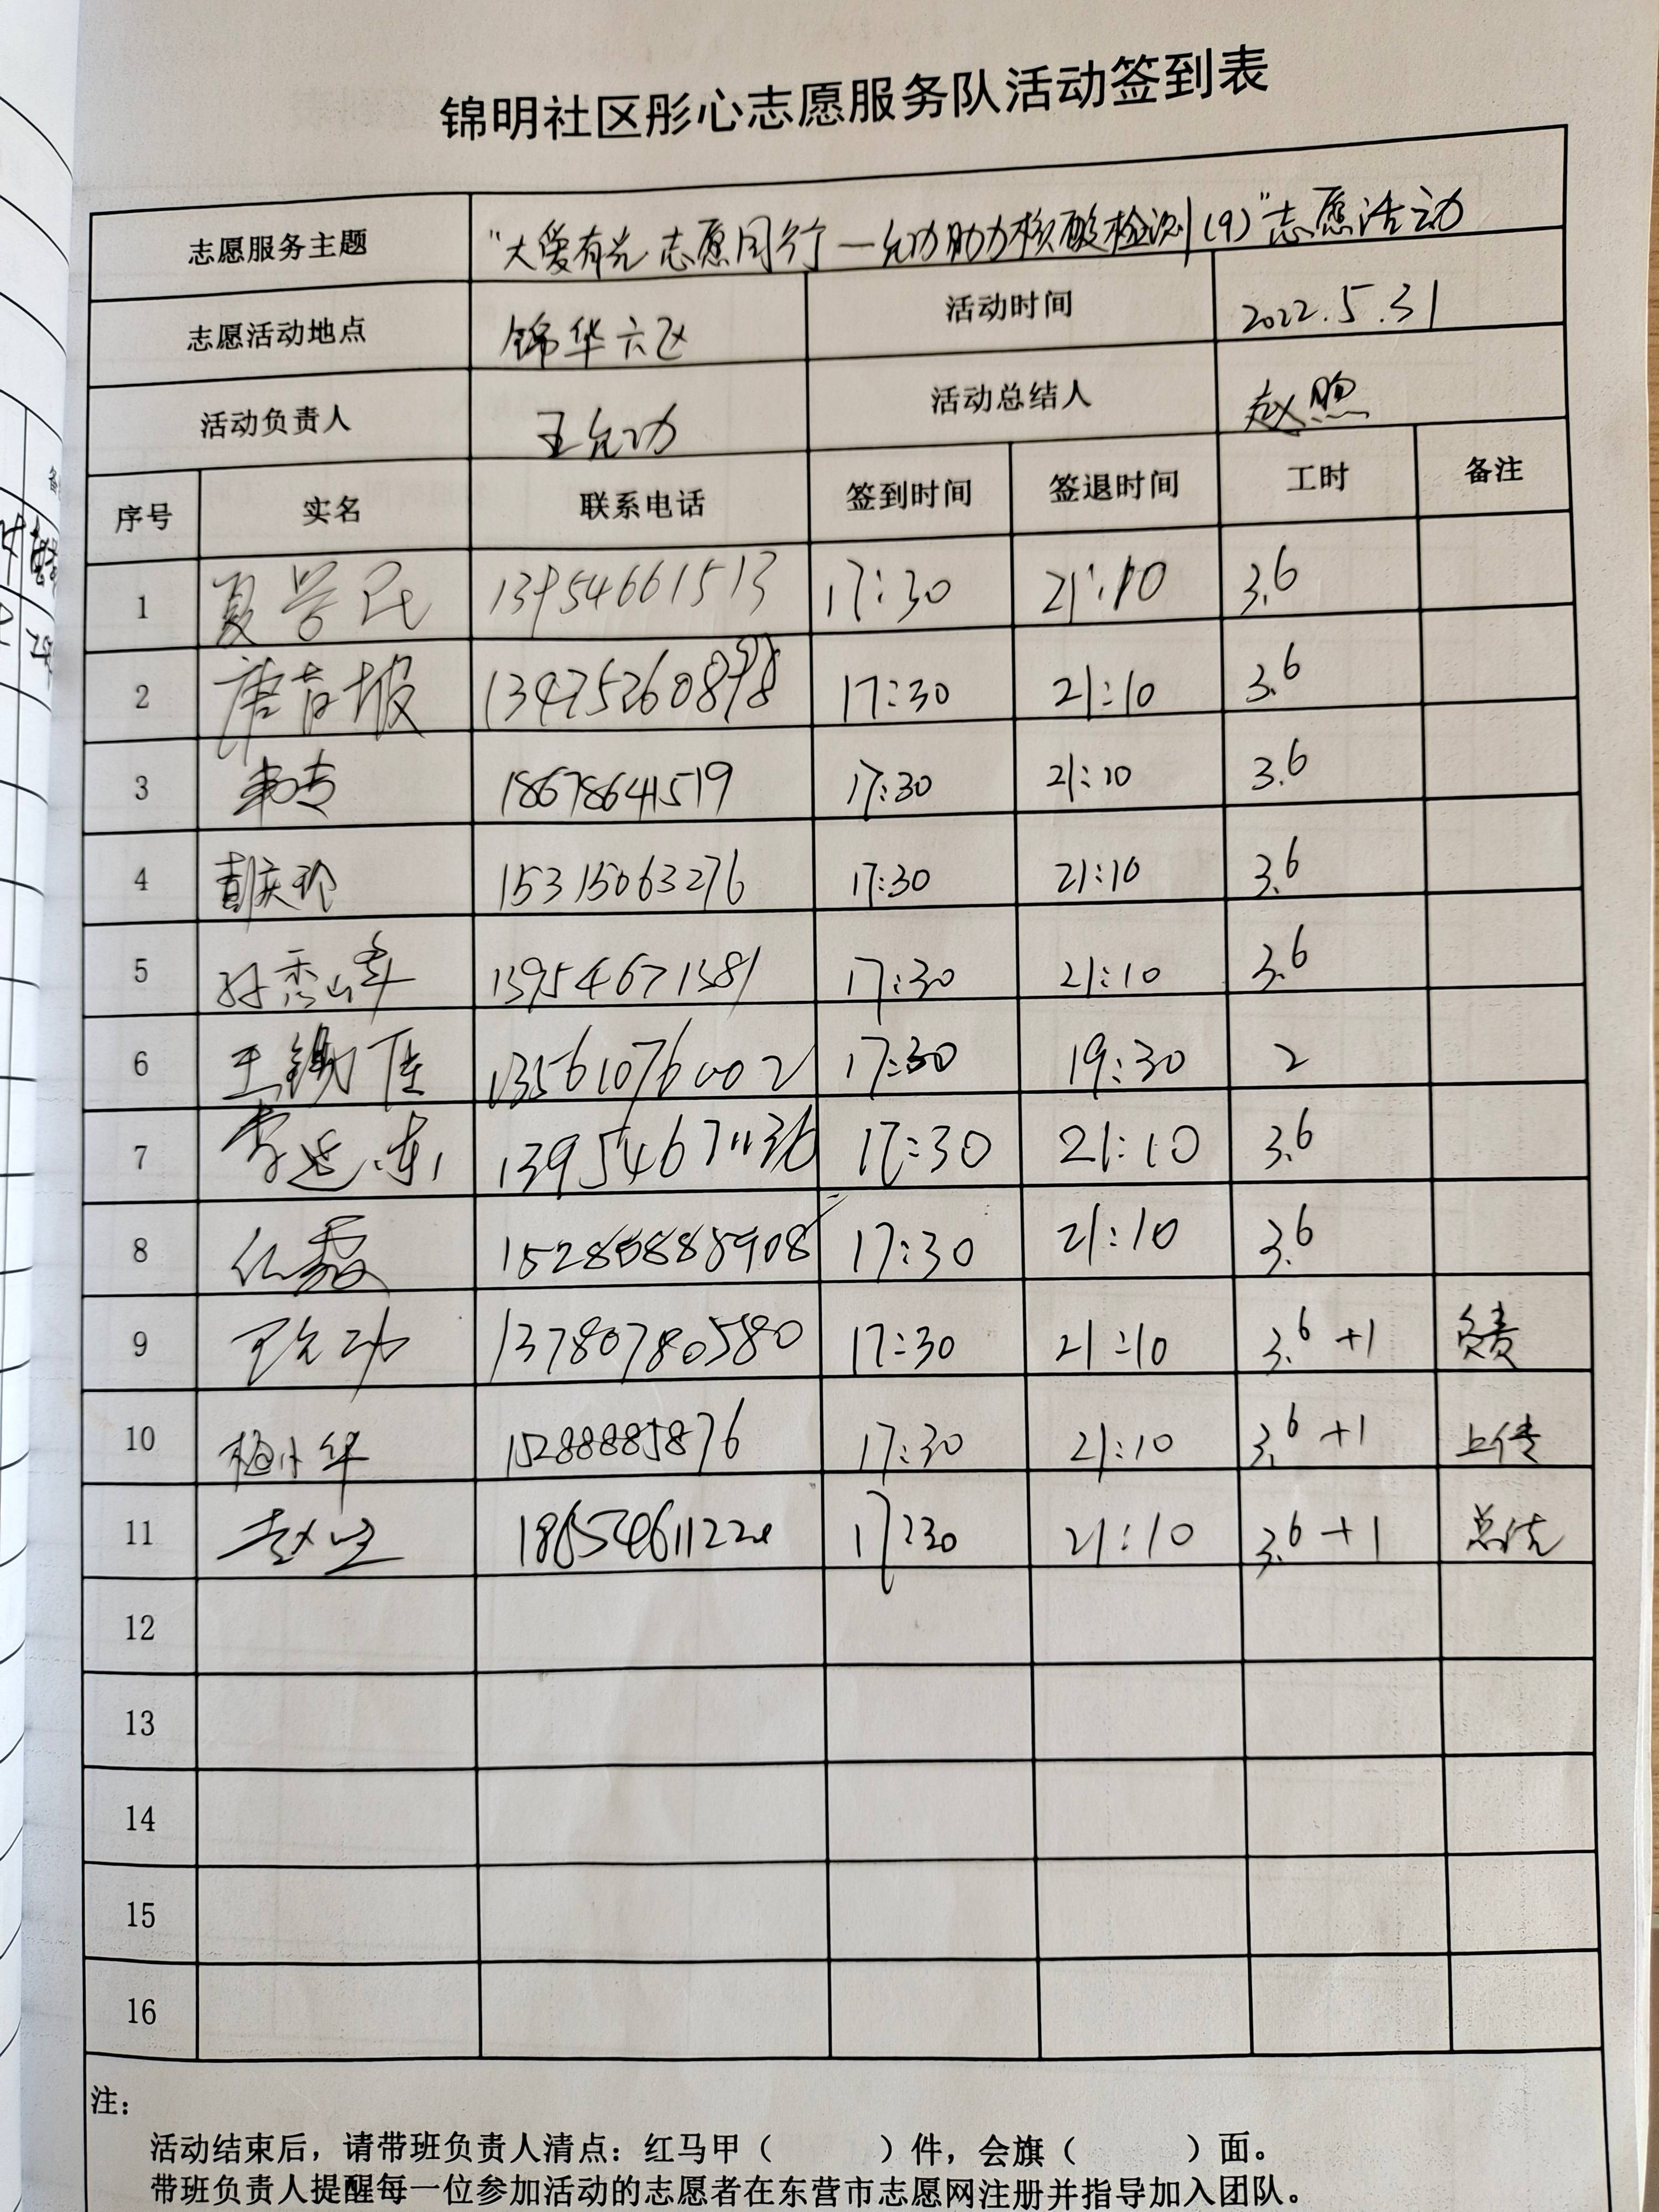 锦明社区彤心志愿服务队活动签到表
志愿服务主题 "大爱有光 志愿同行—允功助力核酸检测(9)"志愿活动
志愿活动地点 锦华六区 活动时间 2022.5.31
活动负责人 王允功 活动总结人 赵煦
序号 实名 联系电话 签到时间 签退时间 工时 备注
1 夏学民 13954661513 17:30 21:10 3.6
2 唐 17:30 21:10 3.6
3 18678641519 17:30 21:10 3.6
4 15315063276 17:30 21:10 3.6
5 孙秀峰 13954671381 17:30 21:10 3.6
6 王 佳 13561076002 17:30 19:30 2
7 李延东 13954671136 17:30 21:10 3.6
8 17:30 21:10 3.6
9 王允功 13780780580 17:30 21:10 3.6+1 负责
10 梅小华 15288885876 17:30 21:10 3.6+1 上传
11 17:30 21:10 3.6+1 总结
12
13
14
15
16
注:
活动结束后，请带班负责人清点：红马甲（ ）件，会旗（ ）面。
带班负责人提醒每一位参加活动的志愿者在东营市志愿网注册并指导加入团队。